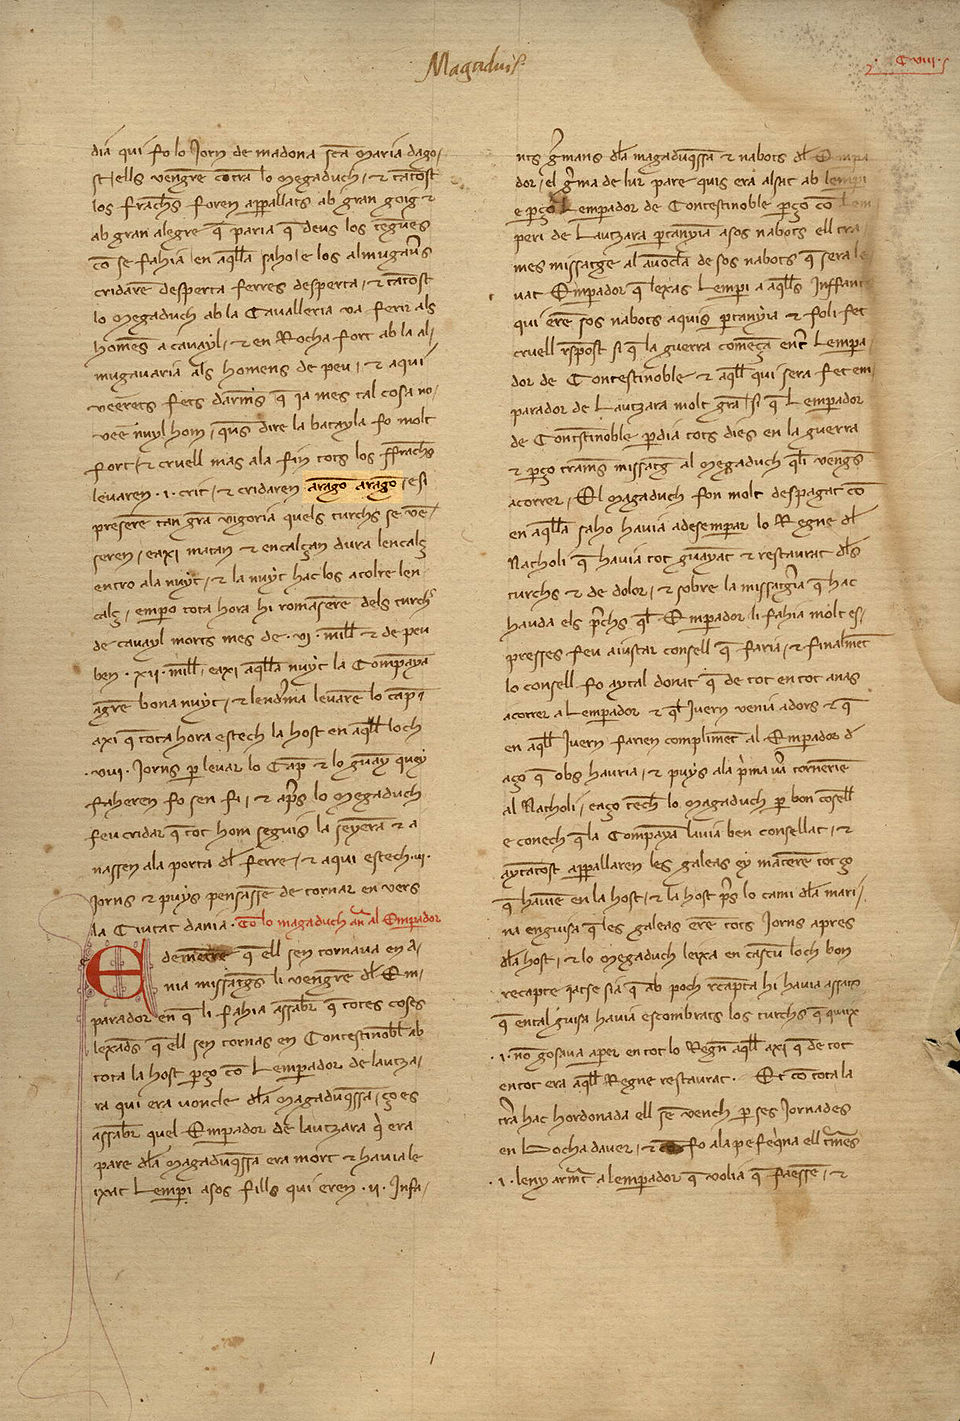 Magaduch
Cviii
dia qui fo lo Jorn de madona scā maria dago-
st ells vengrē contra lo megaduch et tātost
los frāchs foren appallats ab gran goig et
ab gran alegre q̄ paria q̄ deus los tēgues
cō se fahia en aq̄lla saho e los almugav̄s
cridarē desperta ferres desperta et tātost
lo megaduch ab la Cavalleria va ferir als
homēs a cavayl et en Rocha fort ab la al-
mugavaria als homens de peu et aqui
veerets fets darm̄s q̄ ia mes tal cosa no
veē nuyl hom que us dire la batayla fo molt
fort et cruell mas ala fin tots los ffrāchs
levaren .i. crit et cridaren arago arago e si
preserē tan grā vigoria quels turchs se vē-
seren eaxi matan et encalçan dura lencalç
entro ala nuyt et la nuyt hac los a tolre len-
calç empo tota hora hi romāserē dels turchs
de cavayl morts mes de .vj. mill et de peu
ben .xii. mill eaxi aq̄lla nuyt la Companya
agrē bona nuyt et lendema levarē lo camp
axi q̄ tota hora estech la host en aq̄ll loch
.viii. Jorns p̱ levar lo Cāp et lo guāy quey
faheren fo sen fi et ap̄s lo megaduch
feu cridar q̄ tot hom seguis la senyera et a
nassen ala porta dl̄ ferre et aqui estech .iii.
Jorns et puys pensassē de tornar en vers
la Ciutat dania. Cō lo magaduch anā al Emp̱ador
E demētre q̄ ell sen tornava en a-
nia missatgēs li vengrē dl̄ Em-
parador en q̄ li fahia assabr̄ q̄ totes coses
lexads q̄ ell sen tornas en Contestinobl̄ ab
tota la host p̱ço cō Lemp̱ador de lautza-
ra qui era voncle dl̄a magaduq̄ssa ço es
assabr̄ quel Emp̱ador de lautzara q̄ era
pare dl̄a magaduq̄ssa era mort et havia le
ixat Lemp̱i asos fills qui eren .ii. Infa-
nts g̱mans dl̄a magaduq̄ssa et nabots dl̄ Empa
dor el g̱ma de lur pare quis era alsat ab lempi
e p̱ço Lemp̱ador de Contestinoble p̱ço cō lem
peri de Lautzara p̱tanyia asos nabots ell tra-
mes missatge al avōcla de sos nabots q̄ sera le
vat Emp̱ador q̄ lexas Lemp̱i a aq̄lls Inffants
qui erē sos nabots aquis p̱tanyia et foli fet
cruell r̄spost si q̄ la guerra comēça ent̄ Lemp̱a-
dor de Contestinoble et aq̄ll qui sera fet em-
parador de Lautzara molt grā si q̄ Lemp̱ador
de Contestinoble p̱dia tots dies en la guerra
et p̱ço tramēs missatg̱ al megaduch q̄li vengs
acorrer El magaduch fon molt despagat cō
en aq̄lla saho havia a desemp̱ar lo Regne dl̄
Natholi q̄ havia tot guāyat et restaurat dl̄s
turchs et de dolor et sobre la missatgr̄ia q̄ hac
hauda els p̄chs q̄l Emp̱ador li fahia molt es-
presses feu aiustar consell q̄ faria et finalmēt
lo consell fo aytal donat q̄ de tot en tot anas
acorrer a Lemp̱ador et q̄l Jvern venia adors et q̄
en aq̄ll Jvern farien complimēt al Emp̱ador d̄
aço q̄ obs hauria et puys ala p̄ma v̄a tornerie
al Natholi eaço tēch lo magaduch p̱ bon cōsell
e conech q̄ la Companya lavia ben consellat et
aytātost appallaren les galeas ey mat̄erē tot ço
q̄ haviē en la host et la host p̄s lo cami dl̄a mari-
na enguisa q̄ les galeas erē tots Jorns apres
dl̄a host et lo megaduch leixa en cascū loch bon
recapte iatse sia q̄ ab poch rēcapta hi havia assats
q̄ en tal guisa havia escombrats los turchs q̄ quix
.i. no gosava aper en tot lo Regn̄ aq̄ll axi q̄ de tot
en tot era aq̄ll Regne restaurat. Et cō tota la
tr̄a hac hordonada ell sē vench p̱ ses Jornades
en Bocha daver et fo ala pefeq̄na ell tmēs
.i. leny armat a lemp̱ador q̄ volia q̄ faessē et